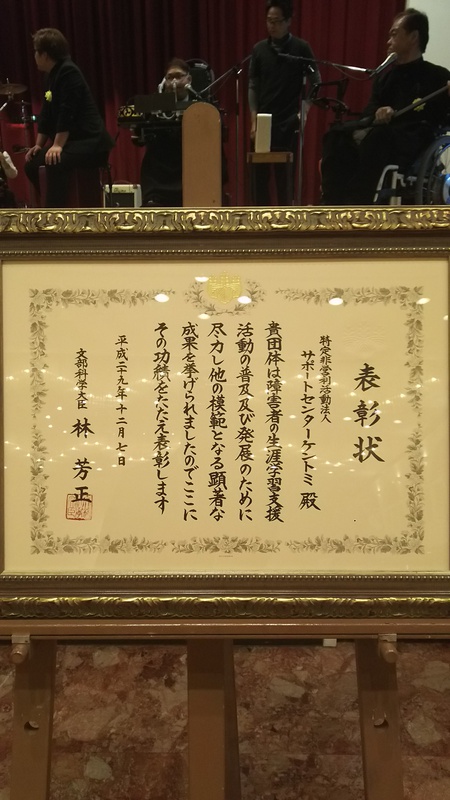 表彰状
特定非営利活動法人
サポートセンターケントミ 殿
貴団体は障害者の生涯学習支援
活動の普及及び発展のために
尽力し他の模範となる顕著な
成果を挙げられましたのでここに
その功績をたたえ表彰します
平成二十九年十二月七日
文部科学大臣 林 芳正